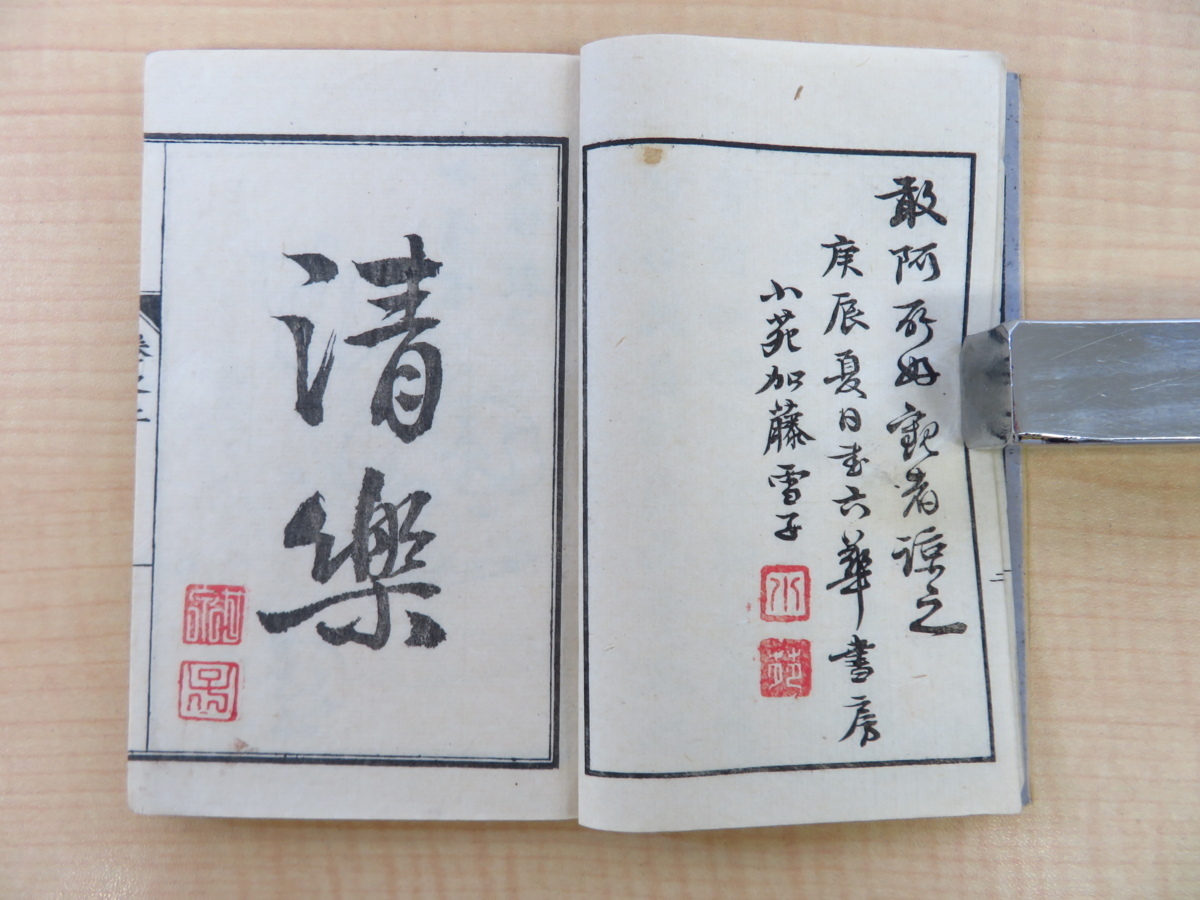 敢阿所好観者諒之
庚辰夏日書六華書房
小苑加藤雪子
小
苑
清樂
卷之二